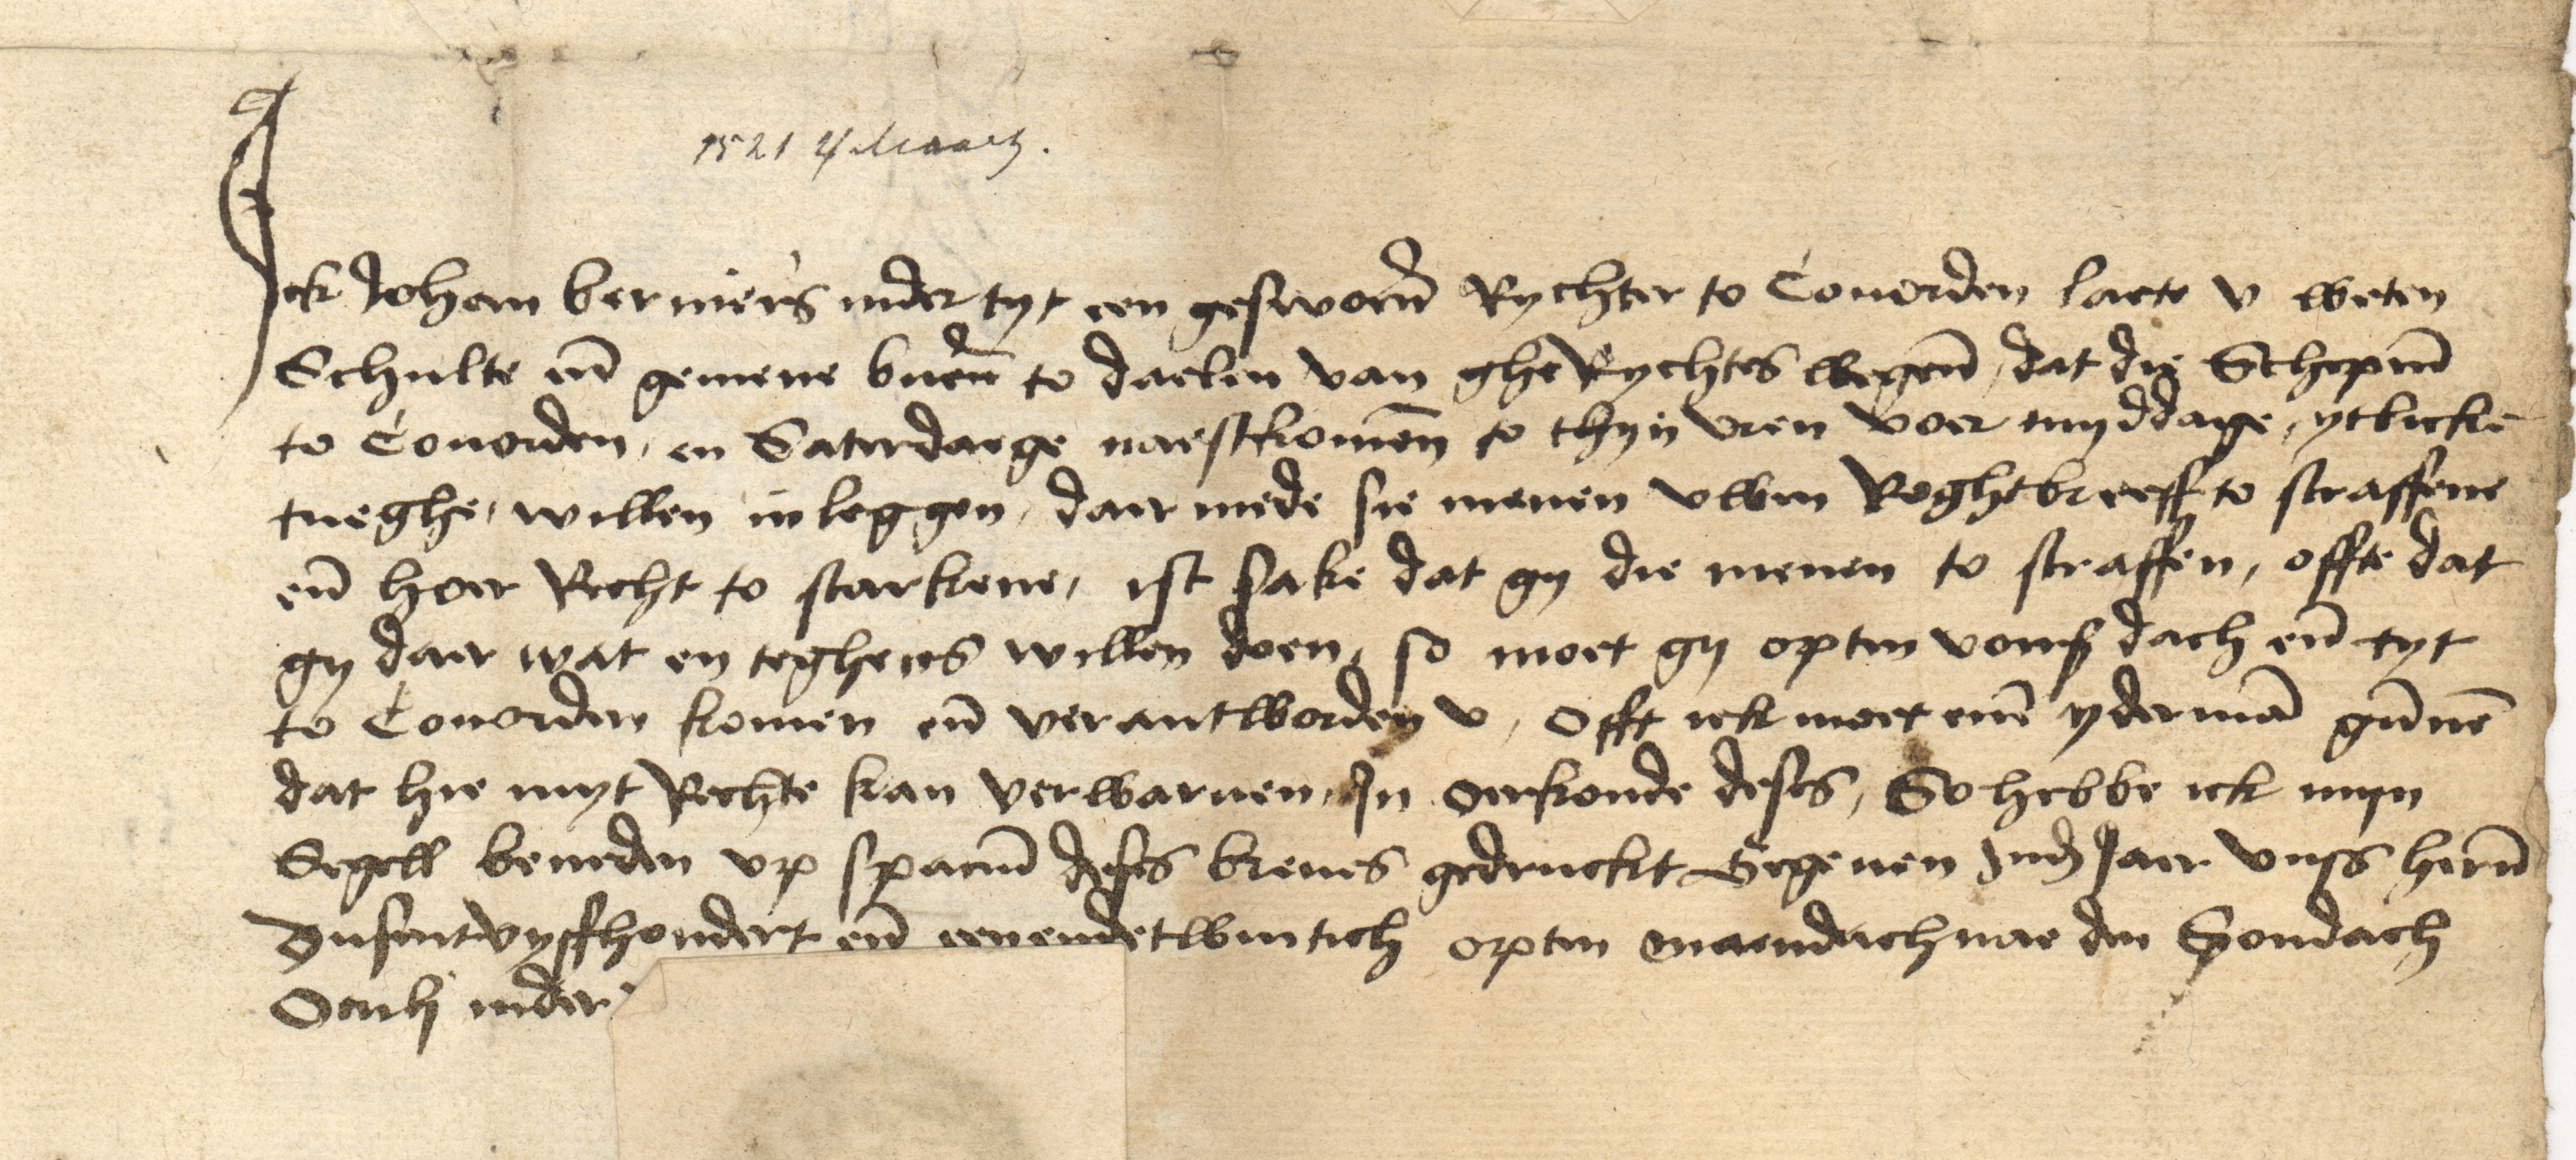 1521 4 Maart.
Ick Johan berniers inder tyt een gesworn̄ Rychter to Couorden laete v weten
Schulte en̄ gemene buern̄ to daelen van gherychtes wegen̄, dat die Schepen̄
to Couorden, en Saterdaege naestkomen̄ to thyn vren voer myddage, ytlicke
tueghe, willen in leggen, daer mede sie menen vwen Roghtbreeff to straffene
en̄ hoer Recht to starkene, ist sake dat gy die menen to straffen, offte dat
gy daer wat en teghens willen doen, so moet gy opten vorß dach en̄ tyt
to Couorden komen en̄ verantworden v, Offt ick moet enē ydermā gūnē
dat hie myt Rechte kan verwarnen, In oerkonde deses, So hebbe ick myn
Segell beneden vp spacium̄ deses breues gedruckt Gegeuen Inđ Jaer vnss hern̄
Dusent vyffhondert en̄ eenendetwintich opten maendach nae den Sondach
Oculj inder